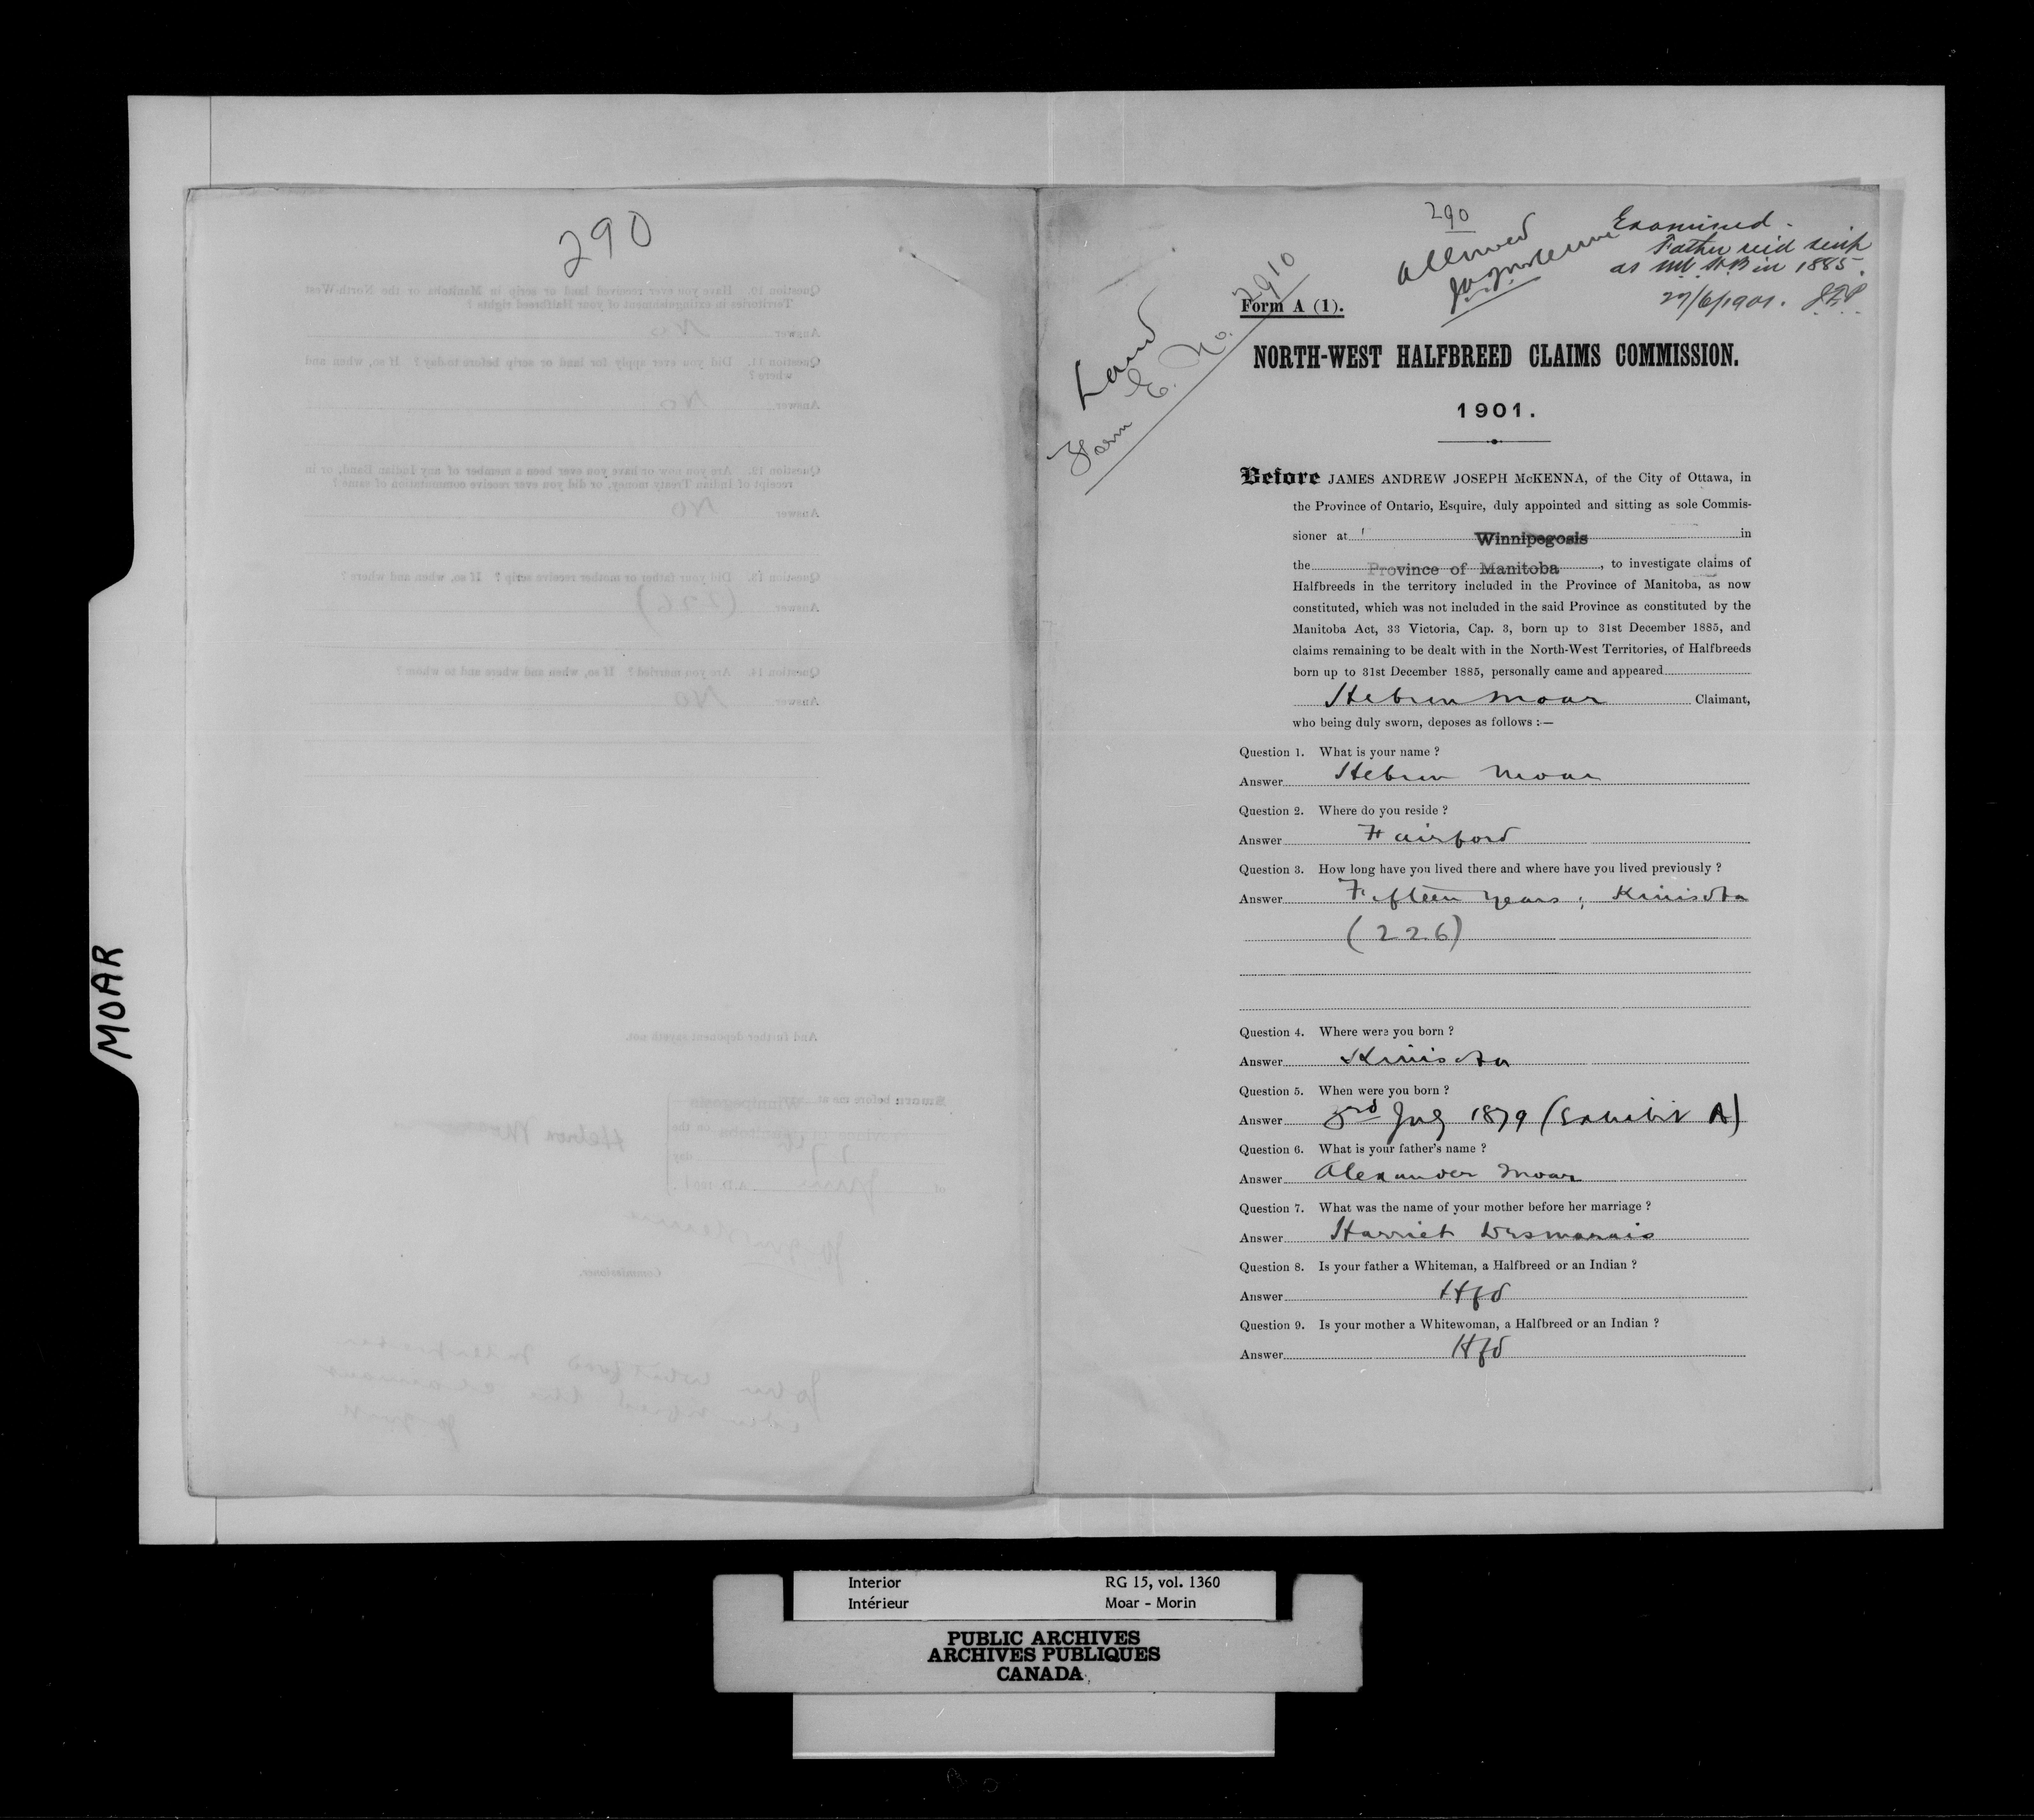 MOAR
290
Question 10. Have you ever received land or scrip in Manitoba or the North-West
Territories in extinguishment of your Halfbreed rights ?
Answer No
Question 11. Did you ever apply for land or scrip before today ? If so, when and
where ?
Answer No
Question 12. Are you now or have you ever been a member of any Indian Band, or in
receipt of Indian Treaty money, or did you ever receive commutation of same ?
Answer No
Question 13. Did your father or mother receive scrip ? If so, when and where ?
Answer (226)
Question 14. Are you married ? If so, when and where and to whom ?
Answer No
And further deponent sayeth not.
Sworn before me at Winnipegosis
Province of Manitoba on the
27th day
of June A.D. 1901.
Hebron Moar
Commissioner.
290
Allowed
Examined.
Father recd scrip
as NW HB in 1885.
27/6/1901.
Land
Form E. No. 2910
Form A (1).
NORTH-WEST HALFBREED CLAIMS COMMISSION.
1901.
Before JAMES ANDREW JOSEPH McKENNA, of the City of Ottawa, in
the Province of Ontario, Esquire, duly appointed and sitting as sole Commis-
sioner at Winnipegosis in
the Province of Manitoba, to investigate claims of
Halfbreeds in the territory included in the Province of Manitoba, as now
constituted, which was not included in the said Province as constituted by the
Manitoba Act, 33 Victoria, Cap. 3, born up to 31st December 1885, and
claims remaining to be dealt with in the North-West Territories, of Halfbreeds
born up to 31st December 1885, personally came and appeared
Hebron Moar Claimant,
who being duly sworn, deposes as follows :—
Question 1. What is your name ?
Answer Hebron Moar
Question 2. Where do you reside ?
Answer Fairford
Question 3. How long have you lived there and where have you lived previously ?
Answer Fifteen years ; Kinisota
(226)
Question 4. Where were you born ?
Answer Kinisota
Question 5. When were you born ?
Answer 3rd July 1879 (Exhibit A)
Question 6. What is your father's name ?
Answer Alexander Moar
Question 7. What was the name of your mother before her marriage ?
Answer Harriet Desmarais
Question 8. Is your father a Whiteman, a Halfbreed or an Indian ?
Answer Hfd
Question 9. Is your mother a Whitewoman, a Halfbreed or an Indian ?
Answer Hfd
Interior RG 15, vol. 1360
Intérieur Moar - Morin
PUBLIC ARCHIVES
ARCHIVES PUBLIQUES
CANADA